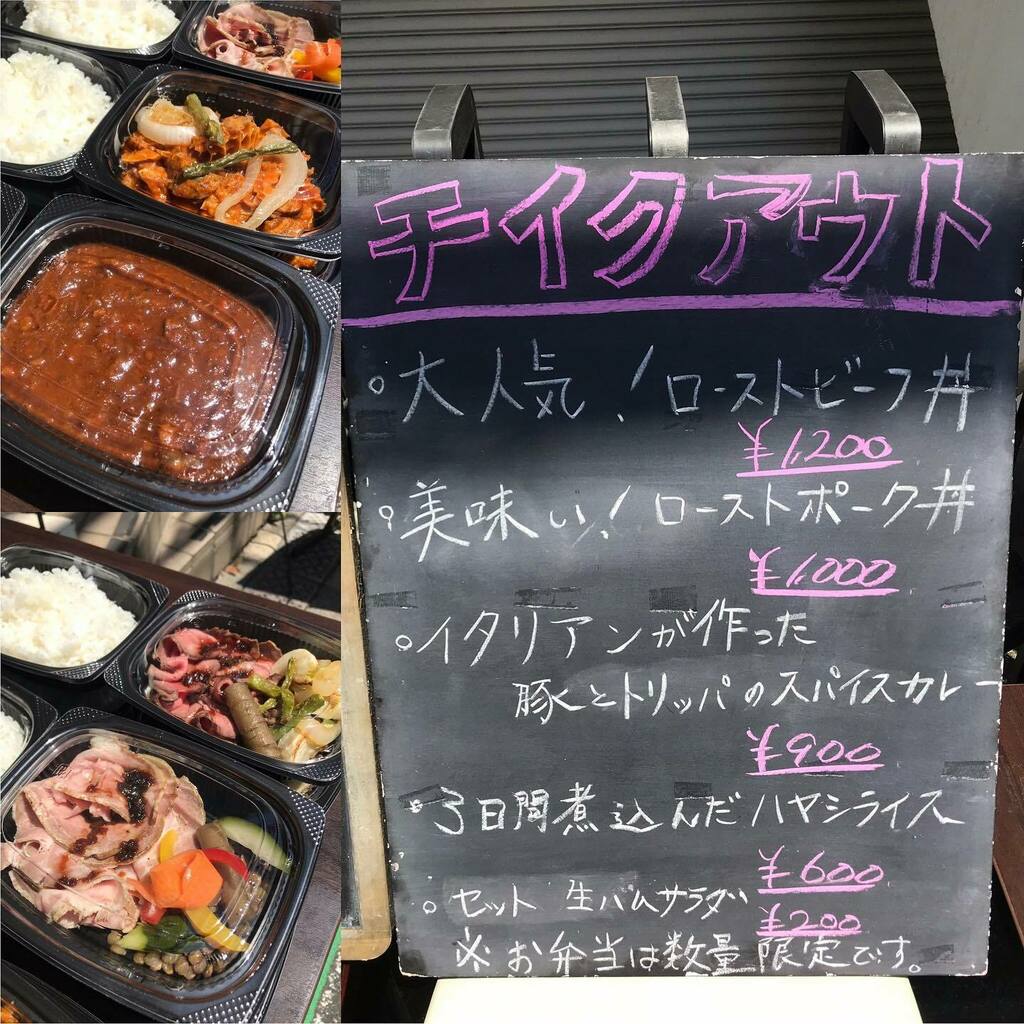 テイクアウト
○大人気!ローストビーフ丼
¥1,200
○美味い!ローストポーク丼
¥1,000
○イタリアンが作った
豚とトリッパのスパイスカレー
¥900
○3日間煮込んだハヤシライス
¥600
○セット 生ハムサラダ
¥200
※お弁当は数量限定です。